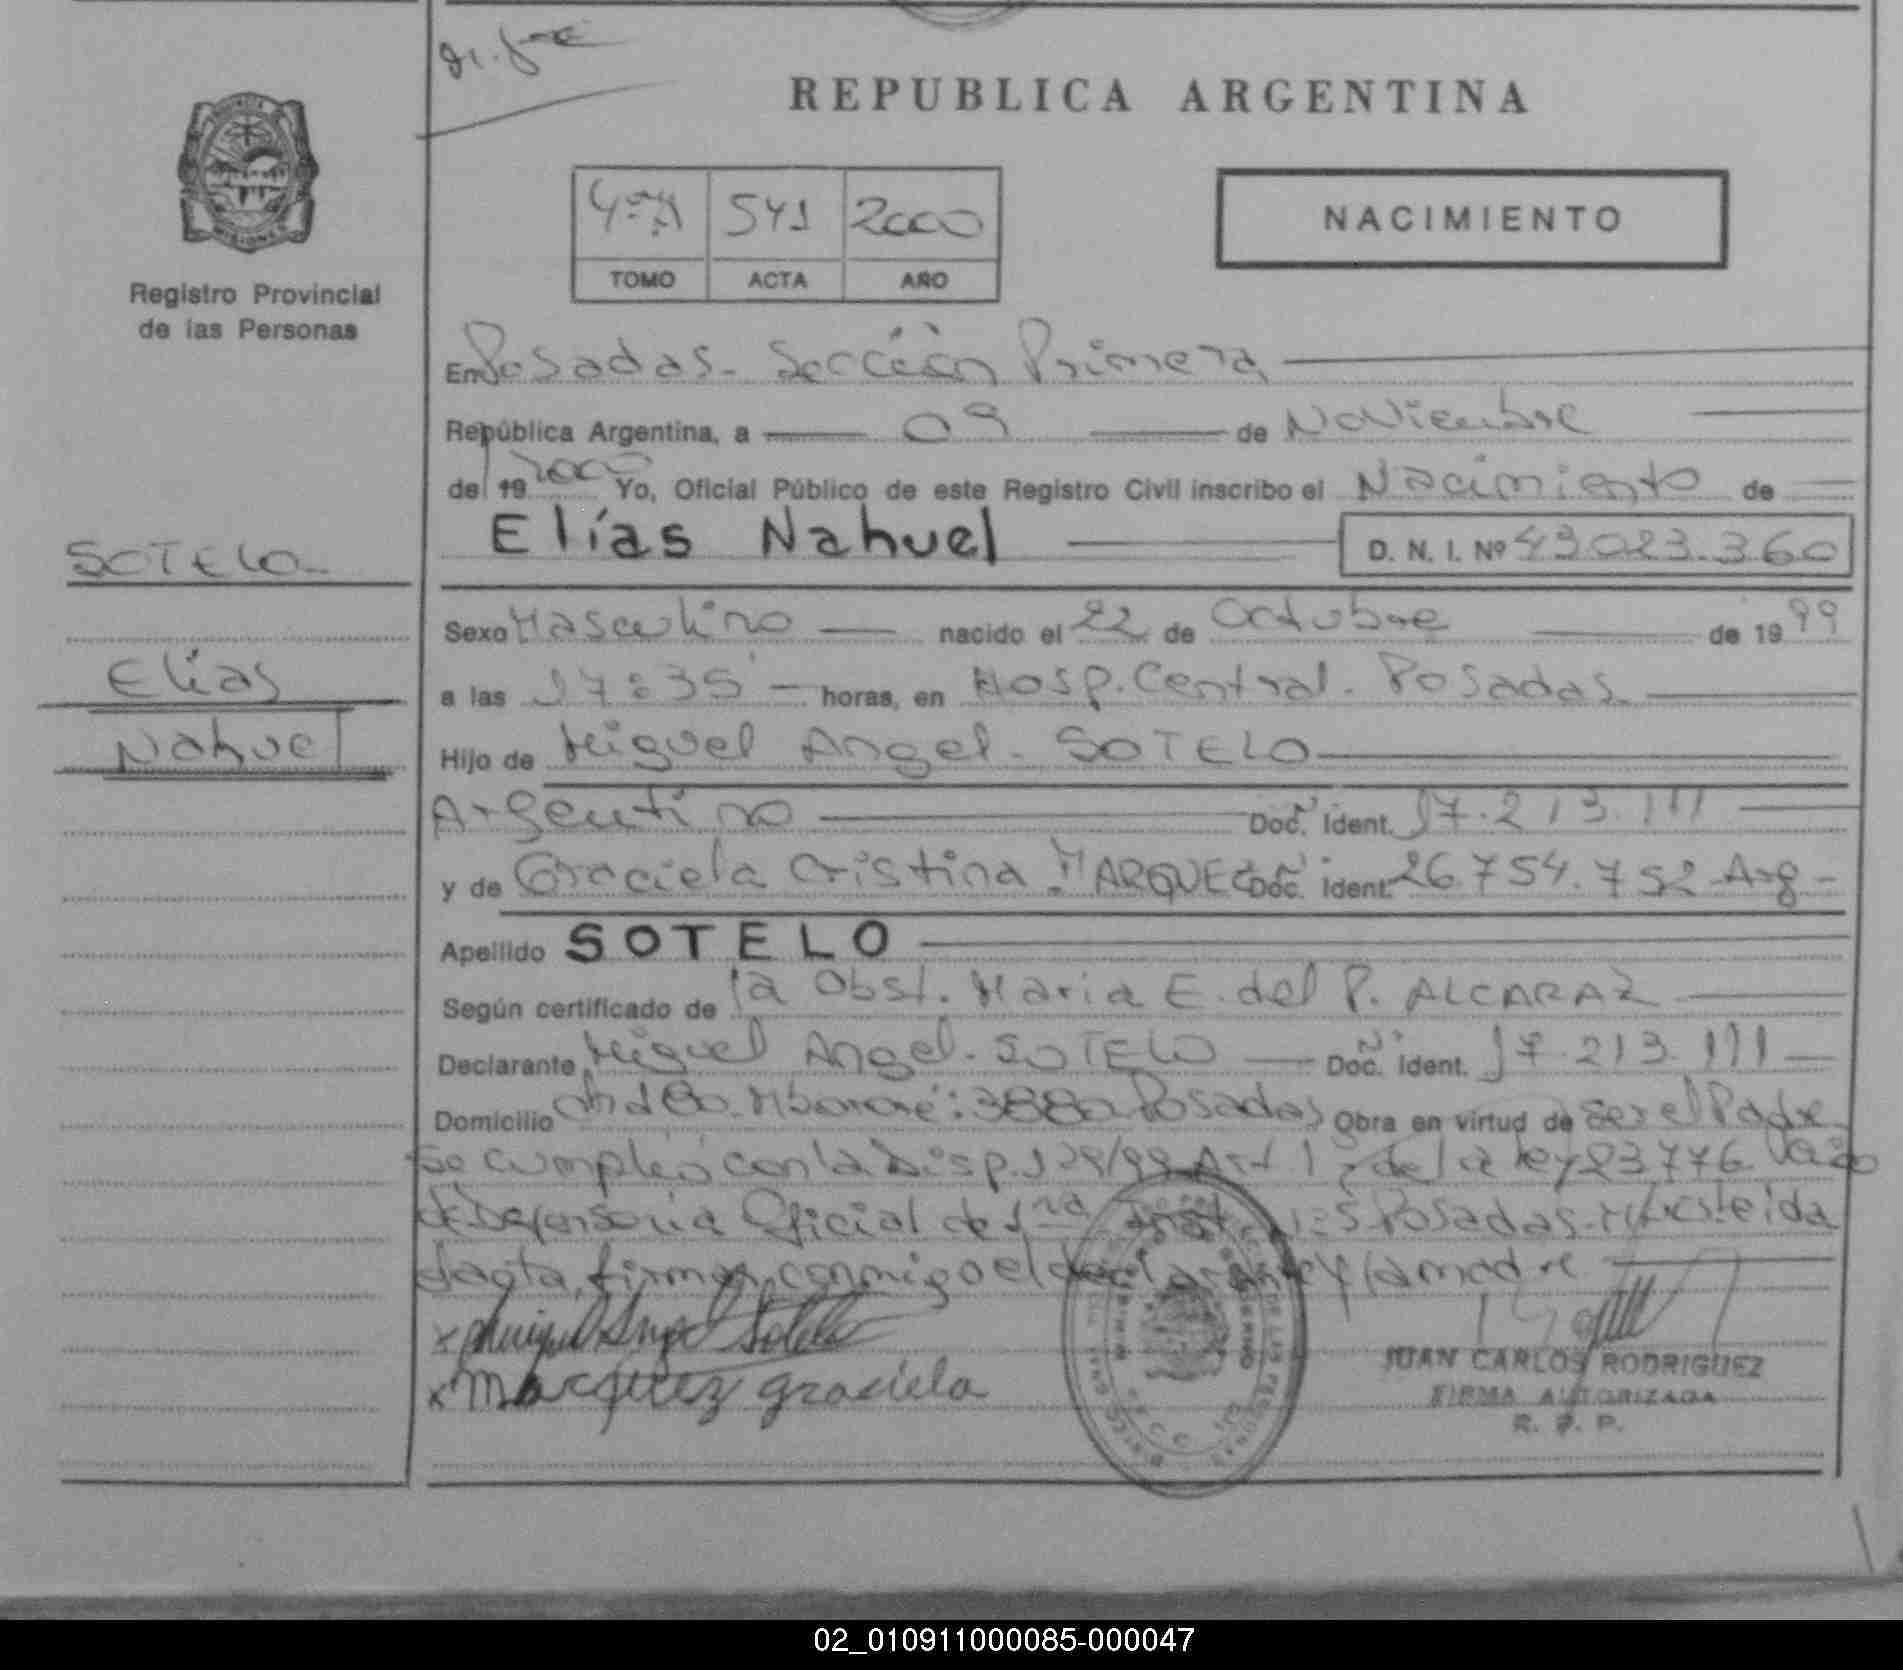 REPUBLICA ARGENTINA
4º A 541 2000
TOMO ACTA AÑO
NACIMIENTO
MISIONES
Registro Provincial
de las Personas
SOTELO
Elías
Nahuel
En Posadas - Sección Primera
República Argentina, a 09 de Noviembre
del 19 2000 Yo, Oficial Público de este Registro Civil inscribo el Nacimiento de
Elías Nahuel D. N. I. Nº 43.023.360
Sexo Masculino nacido el 22 de Octubre de 19 99
a las 17:35 horas, en Hosp. Central. Posadas
Hijo de Miguel Angel SOTELO
Argentino Doc. Ident. 17.213.111
y de Graciela Cristina MARQUEZ Doc. Ident. 26.754.752 Arg -
Apellido SOTELO
Según certificado de la Obst. Maria E. del P. ALCARAZ
Declarante Miguel Angel SOTELO Doc. Ident. 17.213.111
Domicilio 3880 Posadas Obra en virtud de ser el Padre
Se cumplió con la Disp. 129/99 Art 1º de la ley 23776
de Defensoria Oficial de 1ra Posadas leida
el acta, firman conmigo el declarante y la madre
x Miguel Angel Sotelo
x Marquez graciela
JUAN CARLOS RODRIGUEZ
FIRMA AUTORIZADA
R. P. P.
02_010911000085-000047